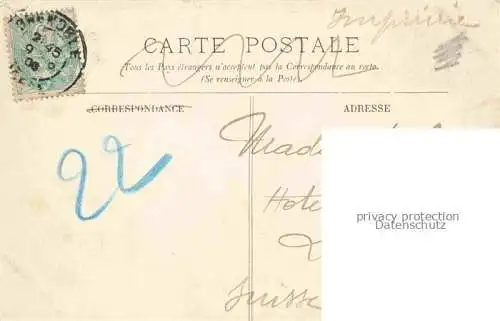 Imprimé
CARTE POSTALE
Tous les Pays étrangers n'acceptent pas la Correspondance au recto.
(Se renseigner à la Poste).
CORRESPONDANCE
ADRESSE
22
Mad
Hote
Suisse
privacy protection
Datenschutz